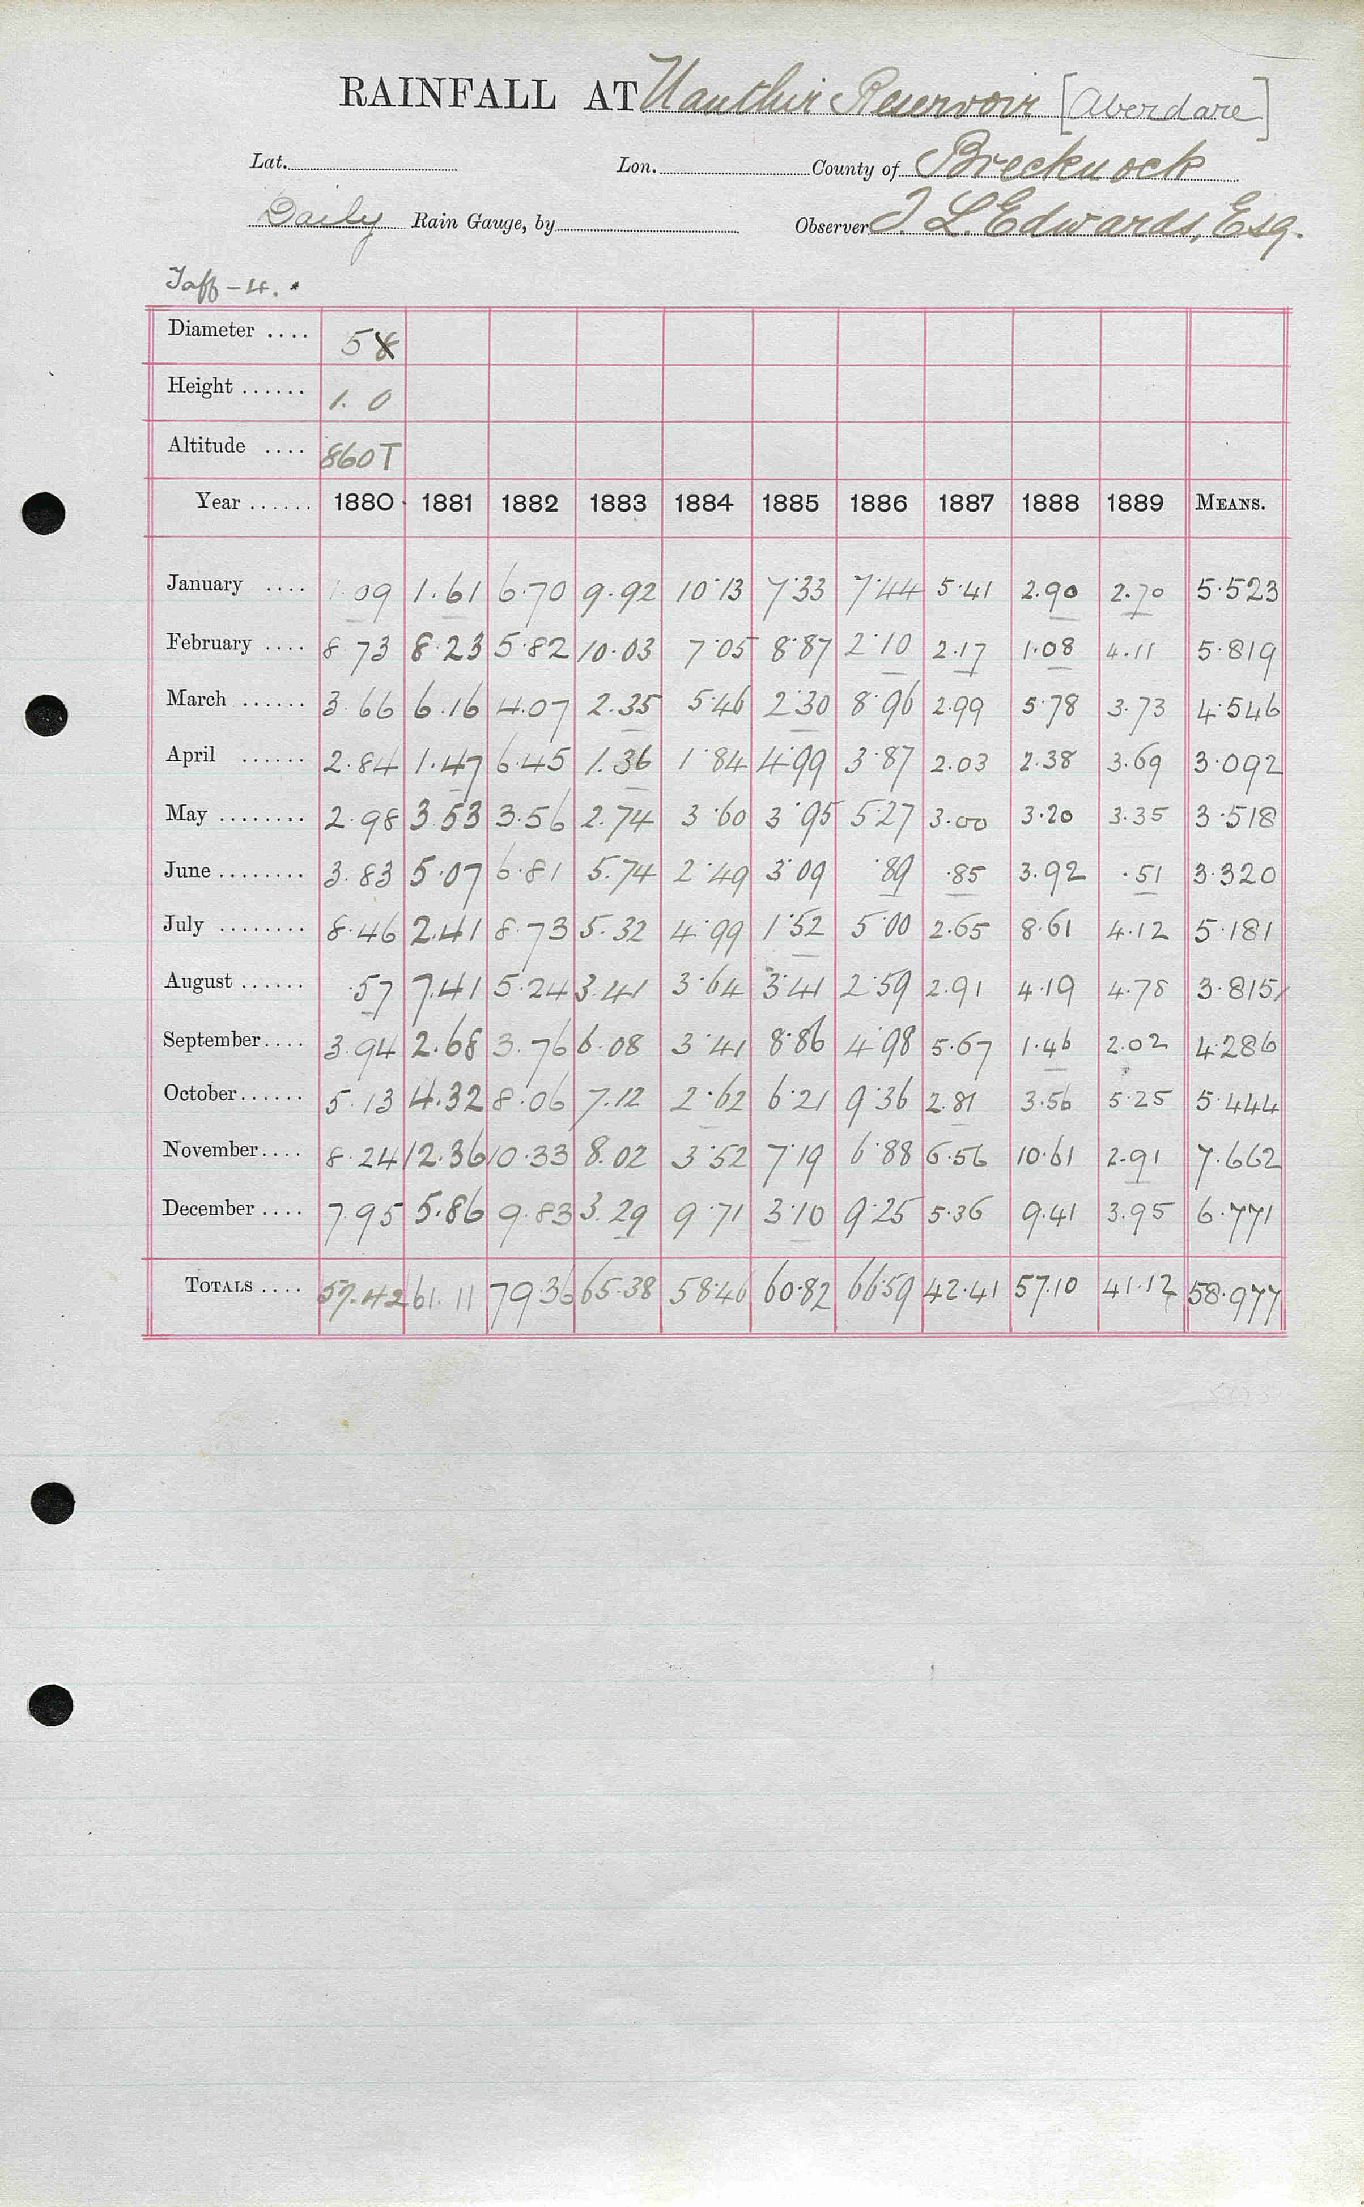 RAINFALL AT Nanthir Reservoir [Aberdare]
Lat. Lon. County of Brecknock
Daily Rain Gauge, by Observer J. L. Edwards, Esq.
Taff-4.
Diameter .... 5
Height ...... 1. 0
Altitude .... 860T
Year ...... 1880 1881 1882 1883 1884 1885 1886 1887 1888 1889 MEANS.
January .... 1.09 1.61 6.70 9.92 10.13 7.33 7.44 5.41 2.90 2.70 5.523
February .... 8.73 8.23 5.82 10.03 7.05 8.87 2.10 2.17 1.08 4.11 5.819
March ...... 3.66 6.16 4.07 2.35 5.46 2.30 8.96 2.99 5.78 3.73 4.546
April ...... 2.84 1.47 6.45 1.36 1.84 4.99 3.87 2.03 2.38 3.69 3.092
May ........ 2.98 3.53 3.56 2.74 3.60 3.95 5.27 3.00 3.20 3.35 3.518
June ........ 3.83 5.07 6.81 5.74 2.49 3.09 .89 .85 3.92 .51 3.320
July ........ 8.46 2.41 8.73 5.32 4.99 1.52 5.00 2.65 8.61 4.12 5.181
August ...... .57 7.41 5.24 3.41 3.64 3.41 2.59 2.91 4.19 4.78 3.815
September.... 3.94 2.68 3.76 6.08 3.41 8.86 4.98 5.67 1.46 2.02 4.286
October...... 5.13 4.32 8.06 7.12 2.62 6.21 9.36 2.81 3.56 5.25 5.444
November.... 8.24 12.36 10.33 8.02 3.52 7.19 6.88 6.56 10.61 2.91 7.662
December .... 7.95 5.86 9.83 3.29 9.71 3.10 9.25 5.36 9.41 3.95 6.771
TOTALS .... 57.42 61.11 79.36 65.38 58.46 60.82 66.59 42.41 57.10 41.12 58.977